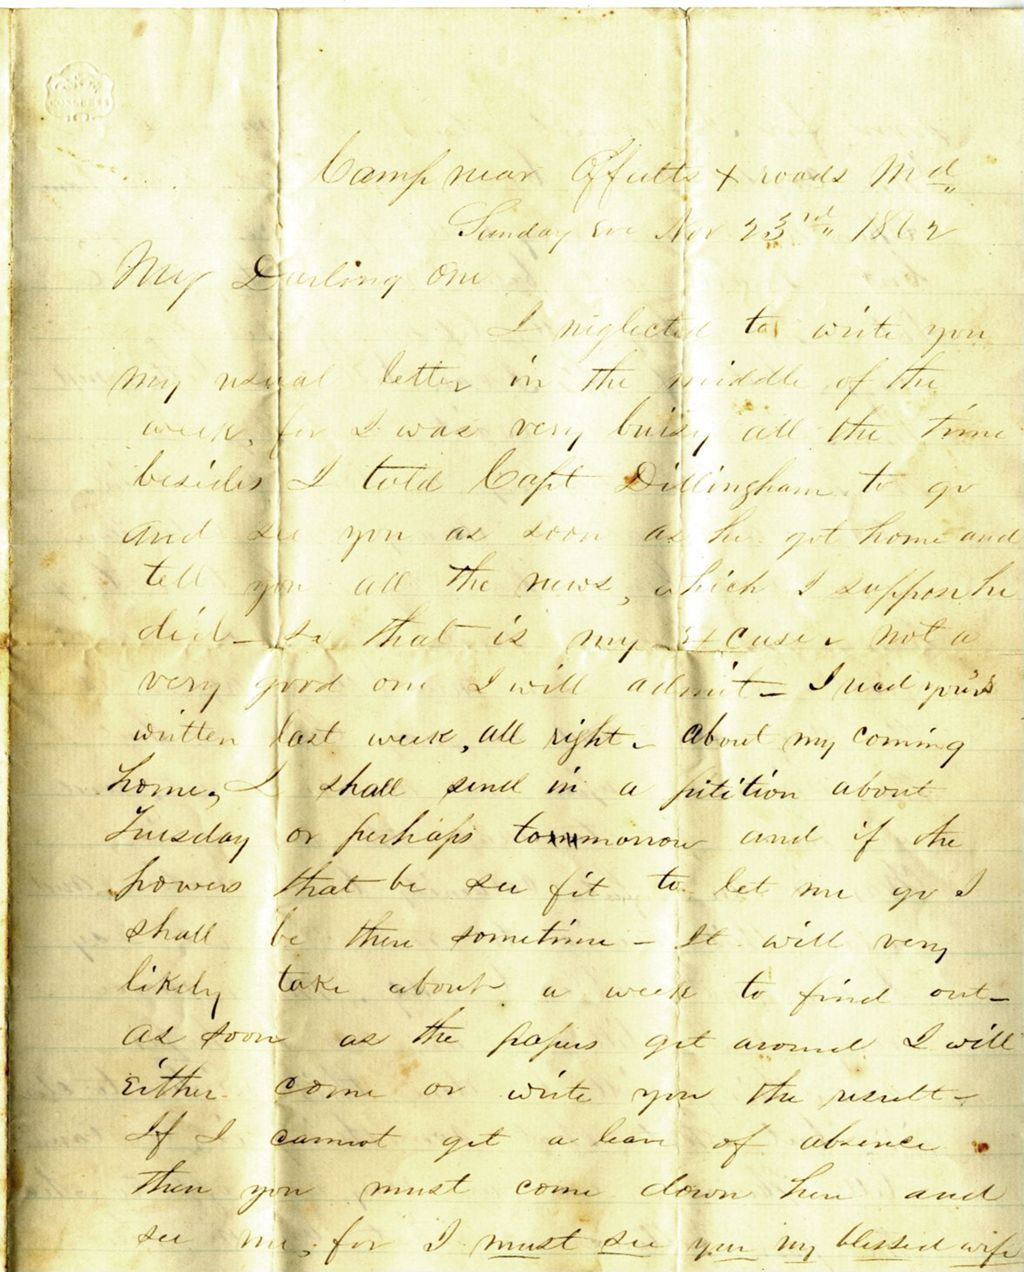 CONGRESS
Camp near Offutts + roads Md
Sunday Eve Nov 23rd 1862
My Darling One
I neglected to write you
my usual letter in the middle of the
week, for I was very buisy all the time
besides I told Capt Dillingham to go
and see you as soon as he got home and
tell you all the news, which I suppose he
did - so that is my excuse. not a
very good one I will admit - I recd yours
written last week, all right. about my coming
home, I shall send in a pitition about
Tuesday or perhaps tommorrow and if the
powers that be see fit to let me go I
shall be there sometime - It will very
likely take about a week to find out -
as soon as the papers get around I will
either come or write you the result -
If I cannot get a leave of absence
then you must come down here and
see me, for I must see you my blessed wife